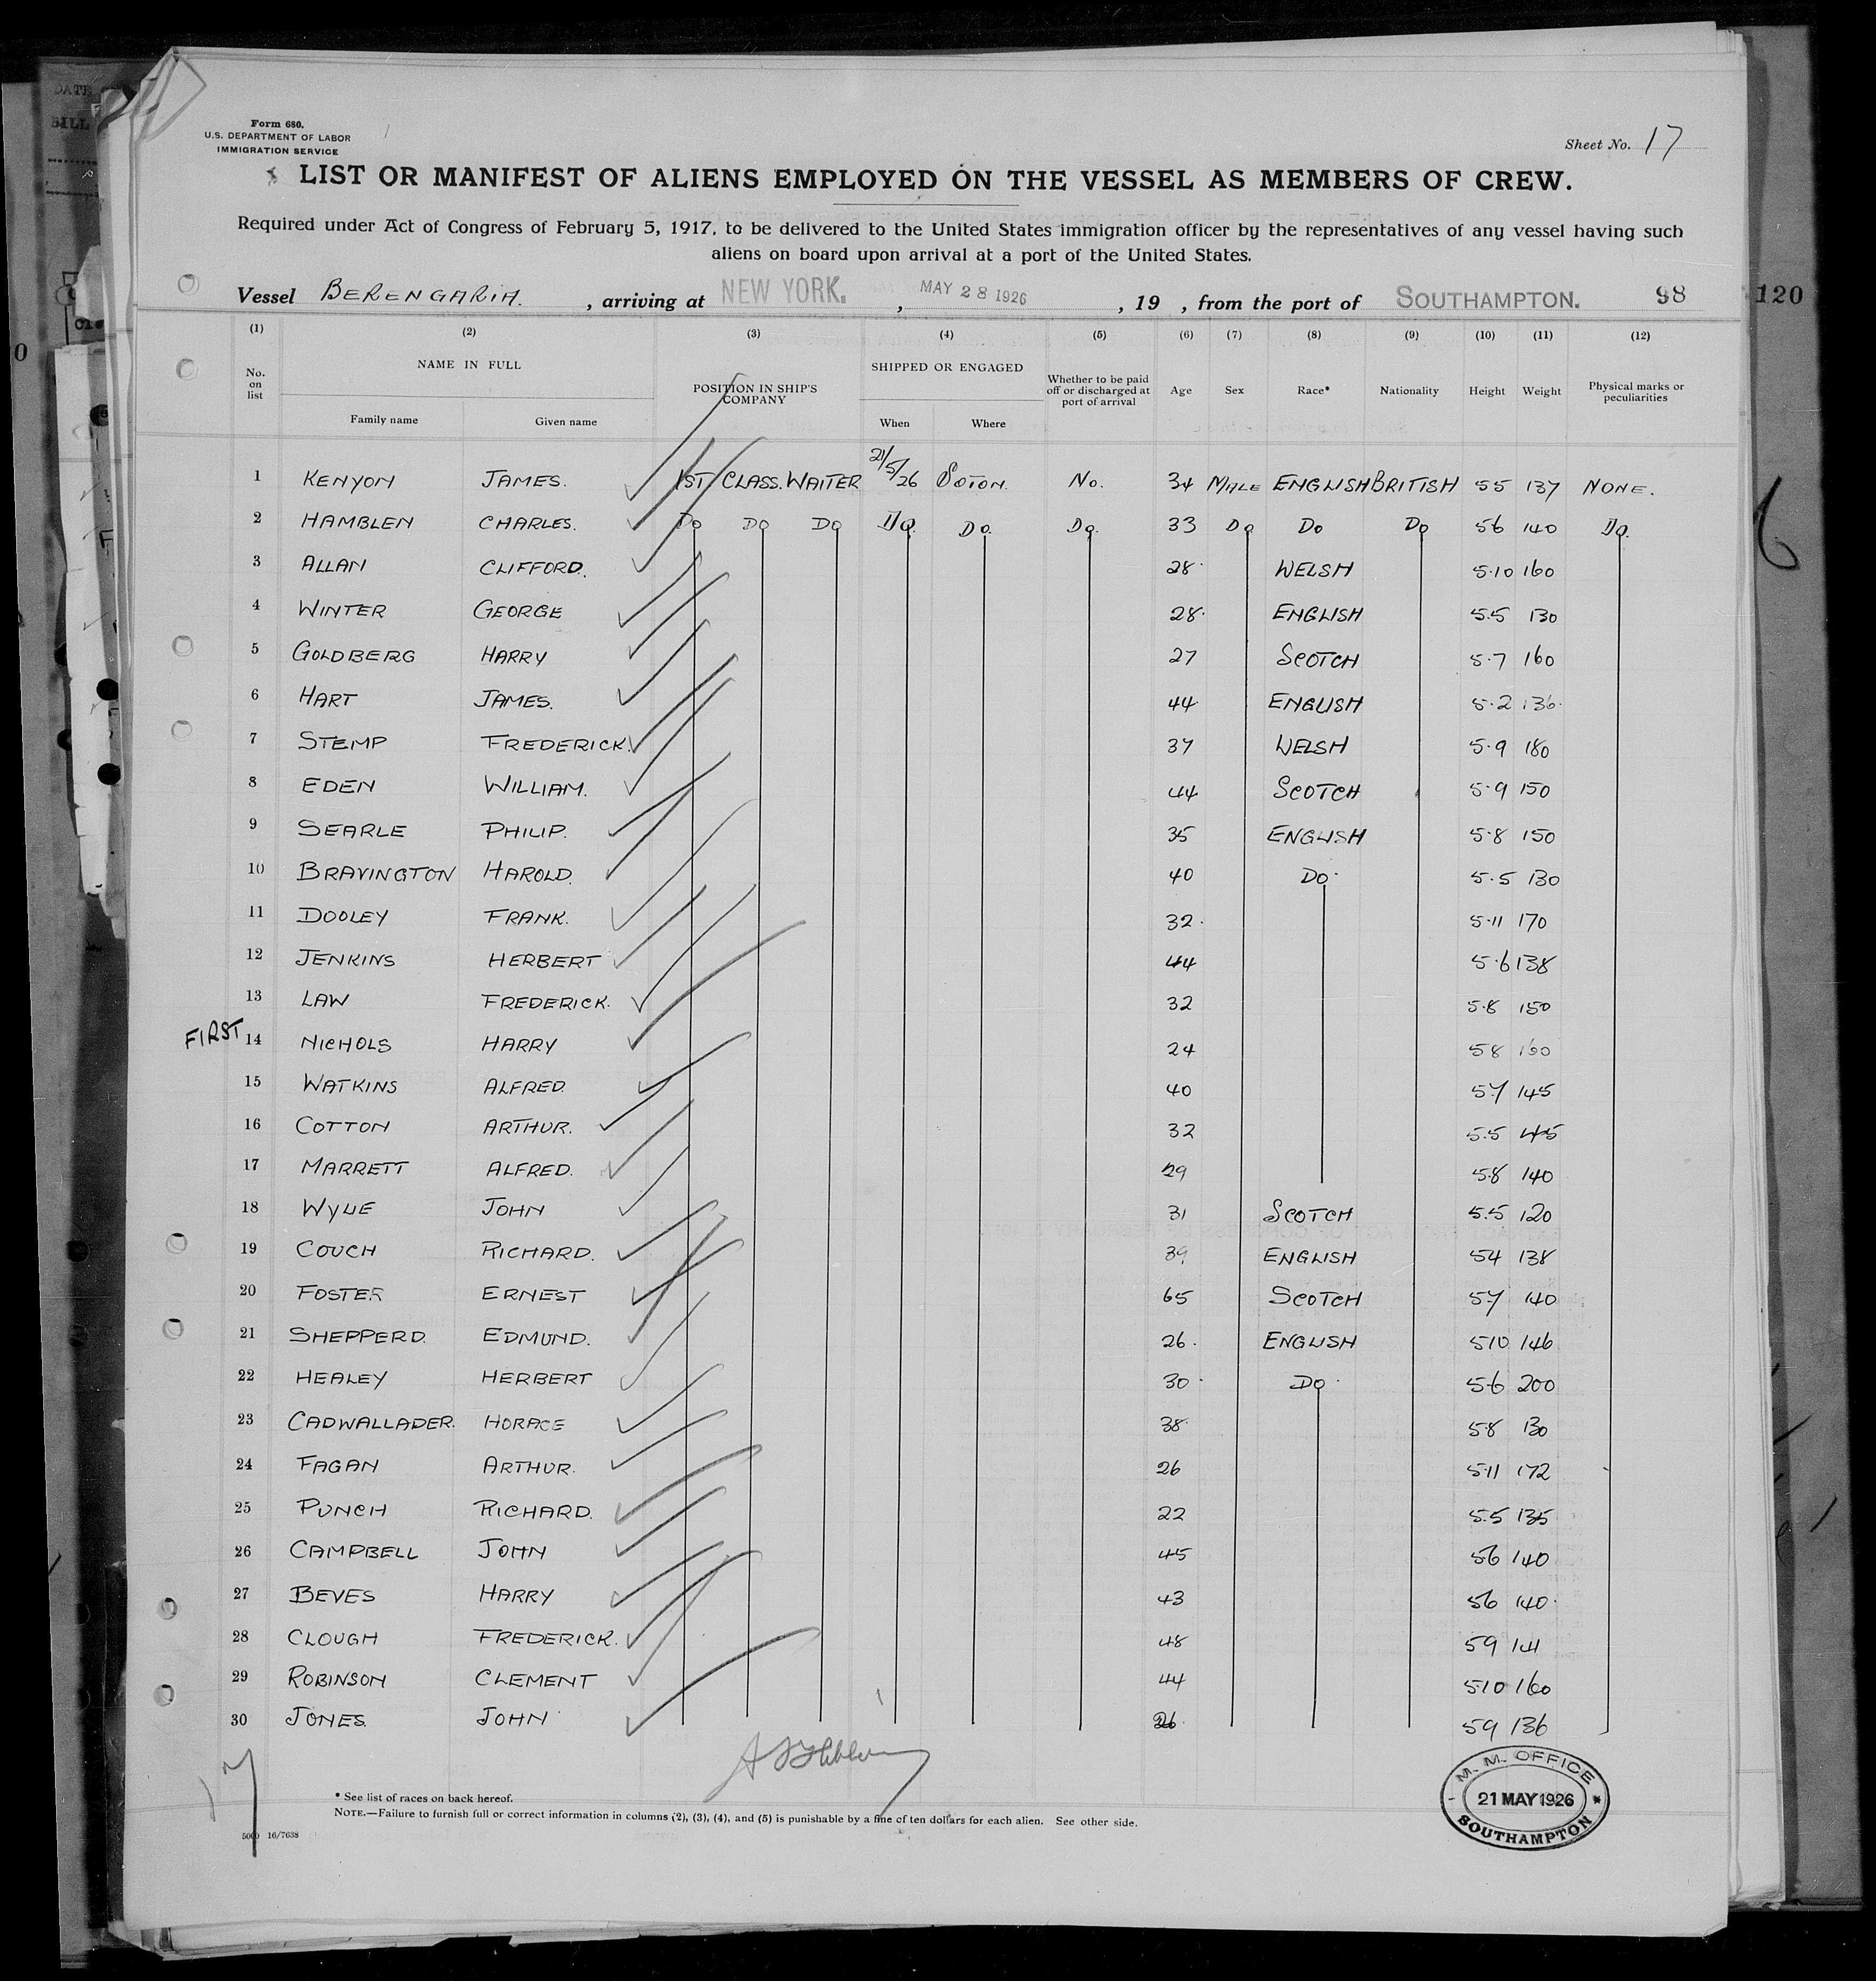 Form 680.
U.S. DEPARTMENT OF LABOR
IMMIGRATION SERVICE
Sheet No. 17
LIST OR MANIFEST OF ALIENS EMPLOYED ON THE VESSEL AS MEMBERS OF CREW.
Required under Act of Congress of February 5, 1917, to be delivered to the United States immigration officer by the representatives of any vessel having such
aliens on board upon arrival at a port of the United States.
Vessel BERENGARIA. , arriving at NEW YORK. , MAY 28 1926 , 19 , from the port of SOUTHAMPTON. 98 120
(1) (2) (3) (4) (5) (6) (7) (8) (9) (10) (11) (12)
No. on list NAME IN FULL Family name Given name POSITION IN SHIP'S COMPANY SHIPPED OR ENGAGED When Where Whether to be paid off or discharged at port of arrival Age Sex Race* Nationality Height Weight Physical marks or peculiarities
1 KENYON JAMES. 1ST CLASS. WAITER 21/5/26 SOTON. No. 34 MALE ENGLISH BRITISH 55 137 NONE.
2 HAMBLEN CHARLES. Do Do Do Do. Do. Do. 33 Do Do Do 56 140 Do.
3 ALLAN CLIFFORD. 28 WELSH 5.10 160
4 WINTER GEORGE 28 ENGLISH 5.5 130
5 GOLDBERG HARRY 27 SCOTCH 5.7 160
6 HART JAMES. 44 ENGLISH 5.2 136
7 STEMP FREDERICK. 37 WELSH 5.9 180
8 EDEN WILLIAM. 44 SCOTCH 5.9 150
9 SEARLE PHILIP. 35 ENGLISH 5.8 150
10 BRAVINGTON HAROLD. 40 Do. 5.5 130
11 DOOLEY FRANK. 32 5.11 170
12 JENKINS HERBERT 44 5.6 138
13 LAW FREDERICK. 32 5.8 150
FIRST 14 NICHOLS HARRY 24 58 160
15 WATKINS ALFRED. 40 5.7 145
16 COTTON ARTHUR. 32 5.5 145
17 MARRETT ALFRED. 29 5.8 140
18 WYLIE JOHN 31 SCOTCH 5.5 120
19 COUCH RICHARD. 39 ENGLISH 54 138
20 FOSTER ERNEST 65 SCOTCH 57 140
21 SHEPPERD. EDMUND. 26 ENGLISH 510 146
22 HEALEY HERBERT 30 Do 5.6 200
23 CADWALLADER. HORACE 38 5.8 130
24 FAGAN ARTHUR. 26 5.11 172
25 PUNCH RICHARD. 22 5.5 135
26 CAMPBELL JOHN 45 56 140
27 BEVES HARRY 43 56 140
28 CLOUGH FREDERICK. 48 59 141
29 ROBINSON CLEMENT 44 5.10 160
30 JONES. JOHN 26 59 136
17
* See list of races on back hereof.
NOTE.—Failure to furnish full or correct information in columns (2), (3), (4), and (5) is punishable by a fine of ten dollars for each alien. See other side.
16/7638
M. M. OFFICE
21 MAY 1926
SOUTHAMPTON